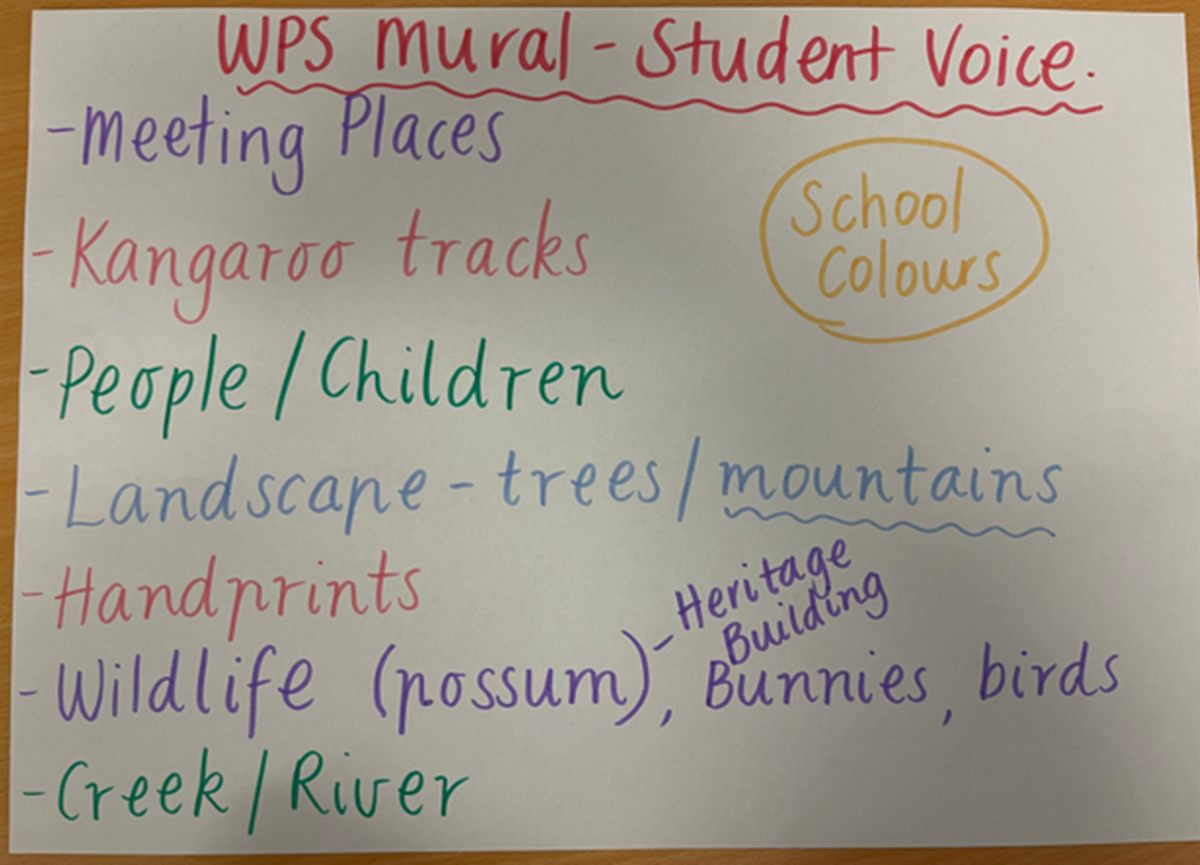 WPS Mural - Student Voice.
- Meeting Places
School
Colours
- Kangaroo tracks
- People / Children
- Landscape - trees / mountains
- Handprints
- Heritage
Building
- Wildlife (possum), Bunnies, birds
- Creek / River